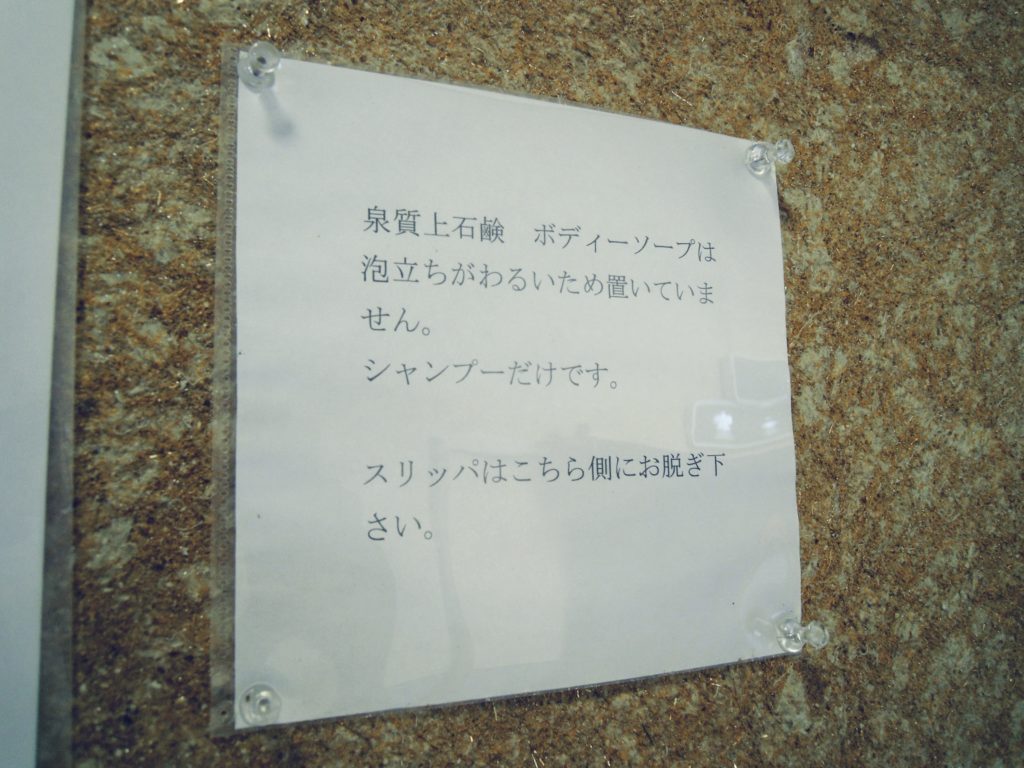 泉質上石鹸　ボディーソープは
泡立ちがわるいため置いていま
せん。
シャンプーだけです。
スリッパはこちら側にお脱ぎ下
さい。